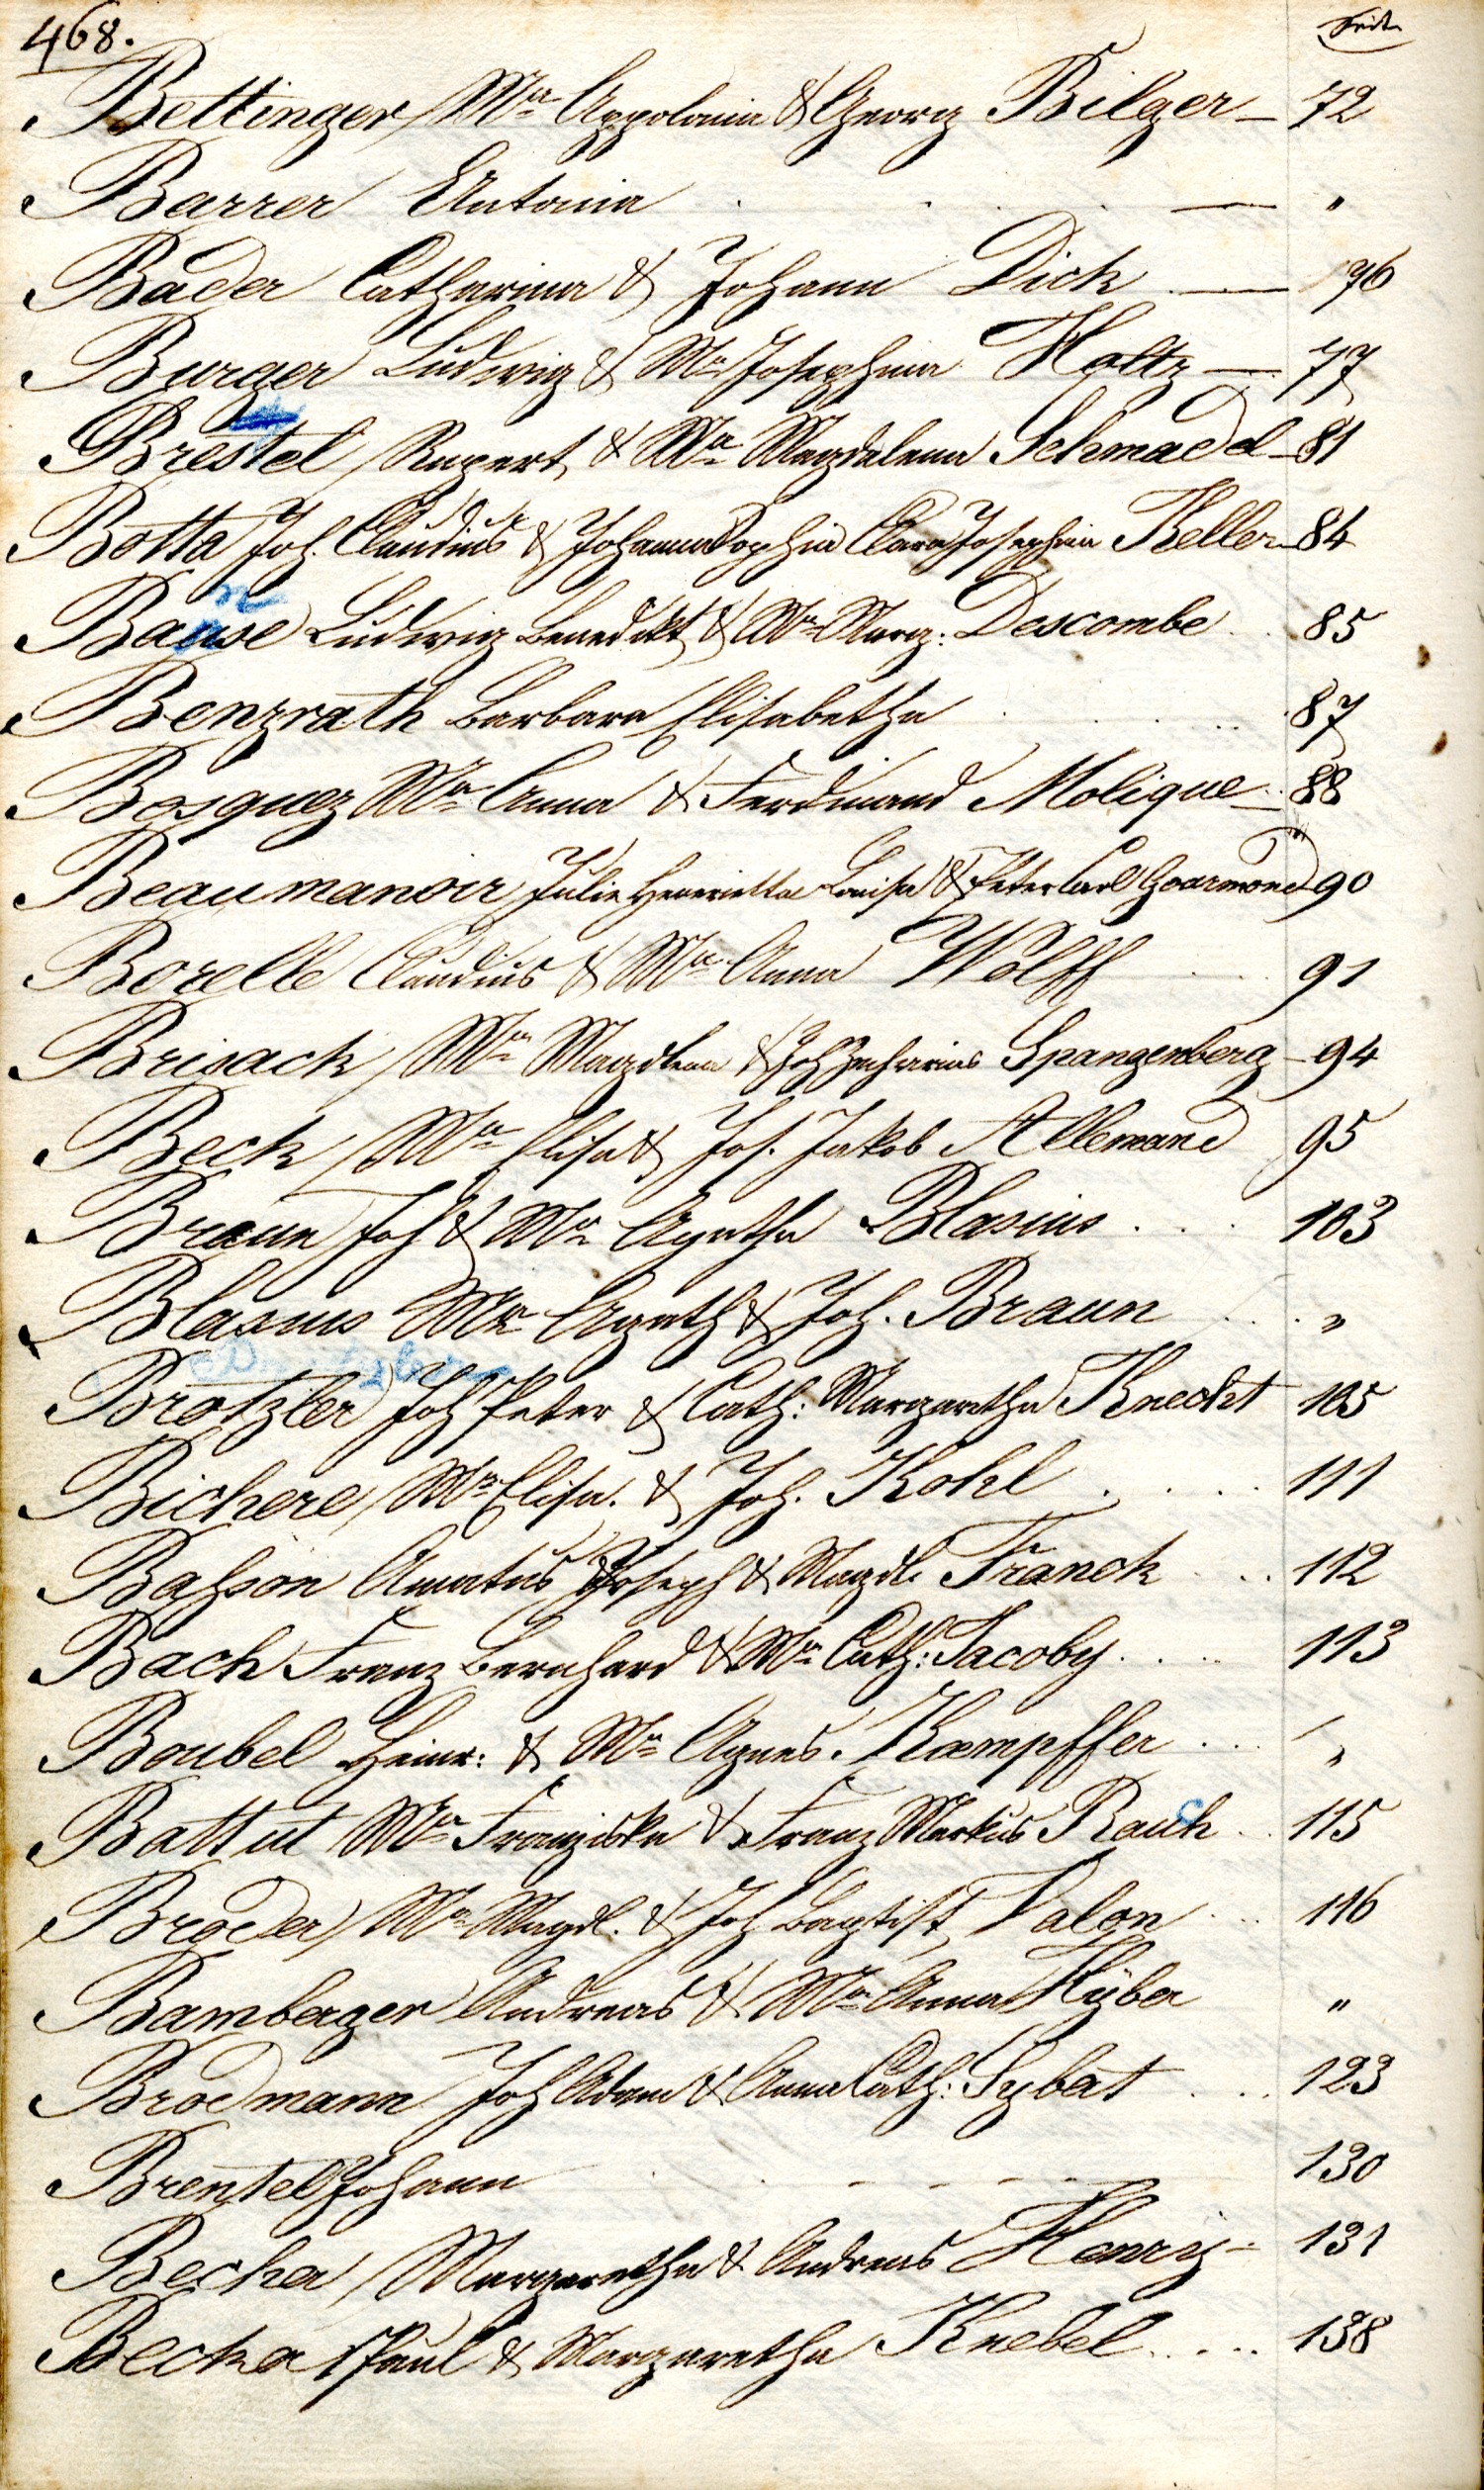 468.
Seite
Bettinger Mra Appolonia & Georg Bilger — 72
Barrer Antonia . . . — "
Bader Catharina & Johann Dick — 76
Burger Ludwig & Ma Josephina Holtz — 77
Brestel Rupert & Mra Magdalena Schmadel — 81
Botta Joh. Claudius & Johanna Sophia Clara Josephina Keller — 84
n
Bause Ludwig Benedikt & Ma Marg: Descombe . . 85
Benzrath Barbara Elisabetha . . . 87
Bosquez Mra Anna & Ferdinand Molique . . 88
Beaumanoir Julie Henrietta Louisa & Peter Carl Goarmond 90
Borelle Claudius & Mra Anna Wolff . . 91
Brisack Mra Magdlena & Joh Zacharias Spangenberg — 94
Beck Mra Elisa & Jos. Jakob Allemand 95
Braun Joh & Ma Agatha Blasius . . . 103
Blasius Ma Agath & Joh. Braun . . . "
Brotzler Joh Peter & Cath: Margaretha Knecht 105
Bichere Ma Elisa. & Joh. Kohl . . . . 111
Bahson Amatus Joseph & Magdl. Franck . . . 112
Bach Franz Bernhard & Ma Cath: Jacoby . . . . 113
Boubel Heinr: & Ma Agnes. Kaempffer . . . "
Battut Ma Franziska & Franz Markus Rauch . . 115
Broder Ma Magdl. & Joh Baptist Valon . . . 116
Bamberger Andreas & Ma Anna Hÿber "
Brodmann Joh Adam & Anna Cath: Sybat . . . 123
Brentel Johann . . - - - - 130
Becher Margaretha & Andreas Henrÿ - 131
Becker Paul & Margaretha Knebel . . . . 138